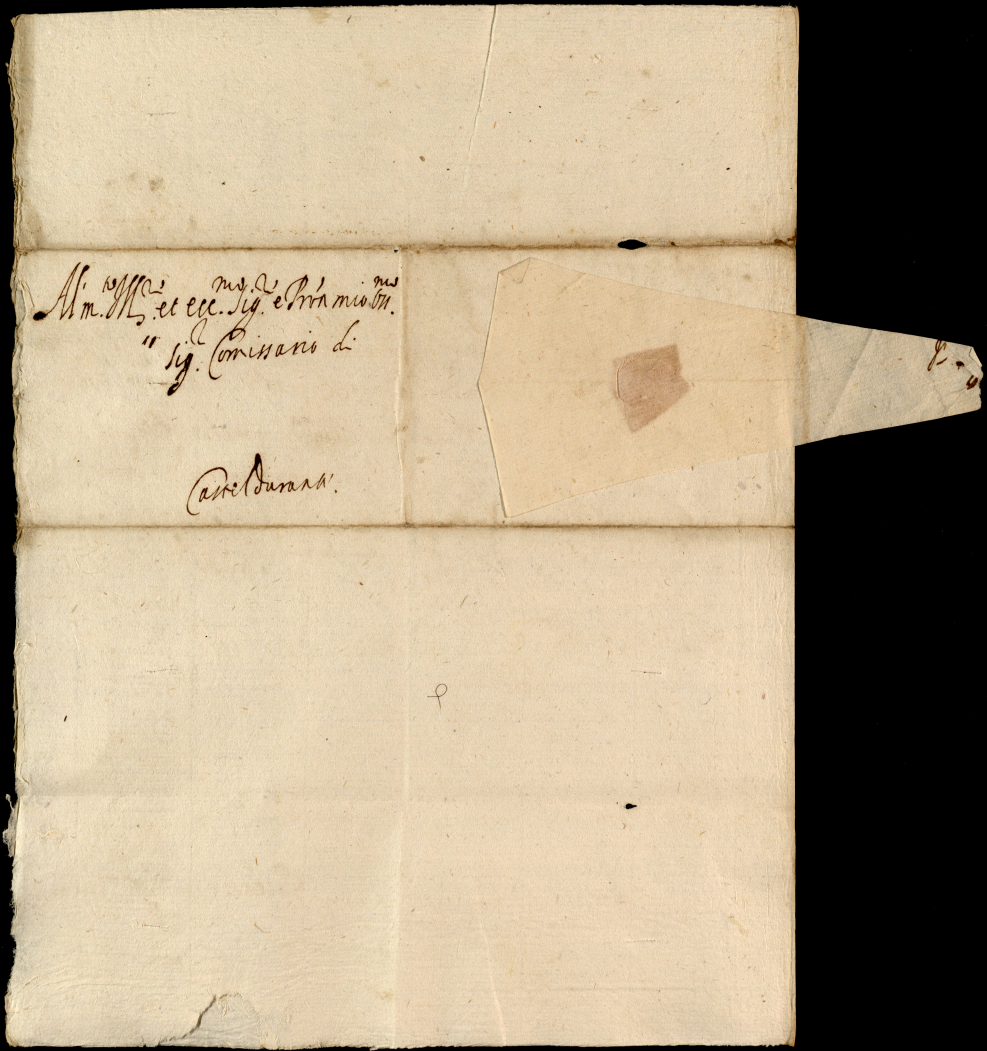 Al m.to Ill.re et ecc.mo Sig.re e Pron mio oss.mo
Sig.r Comissario di
Casteldurante.